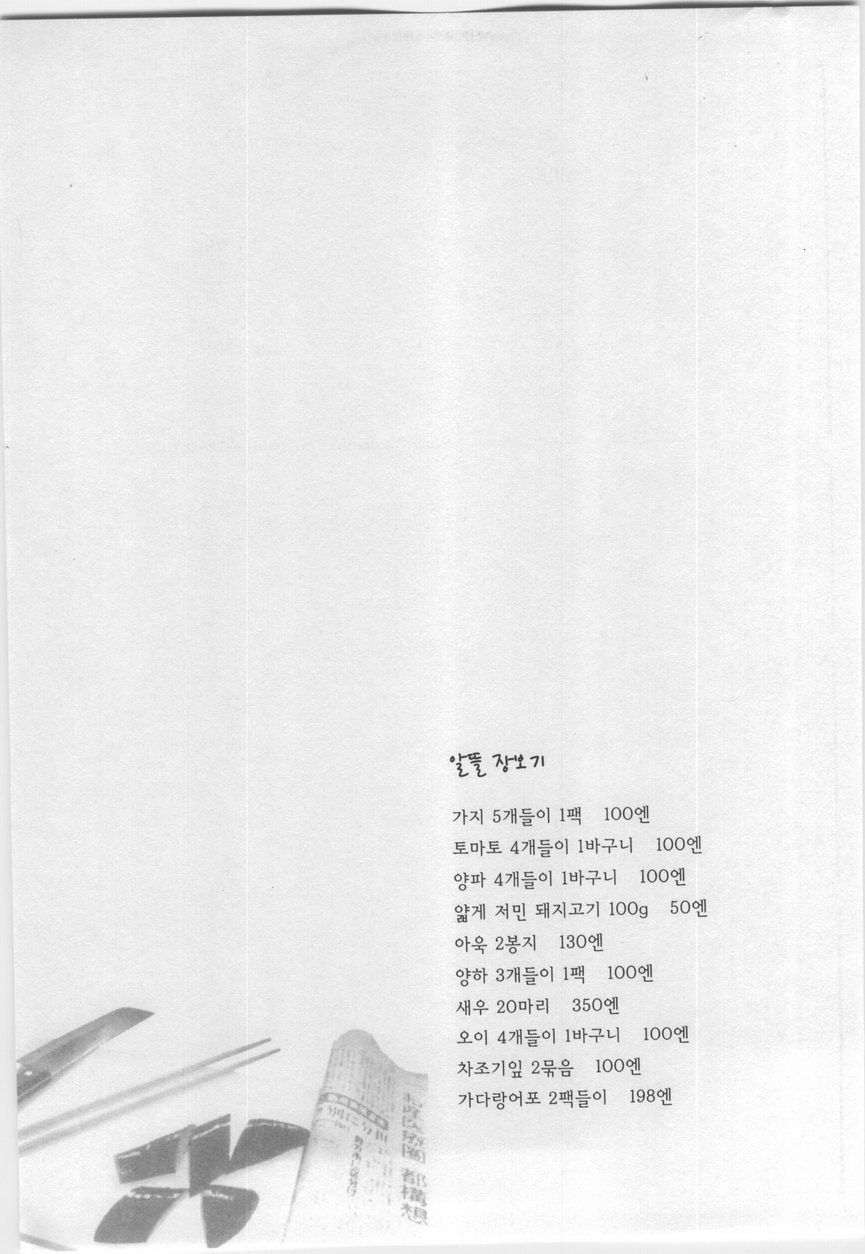 알뜰 장보기
가지 5개들이 1팩 100엔
토마토 4개들이 1바구니 100엔
양파 4개들이 1바구니 100엔
얇게 저민 돼지고기 100g 50엔
아욱 2봉지 130엔
양하 3개들이 1팩 100엔
새우 20마리 350엔
오이 4개들이 1바구니 100엔
차조기잎 2묶음 100엔
가다랑어포 2팩들이 198엔
都構想